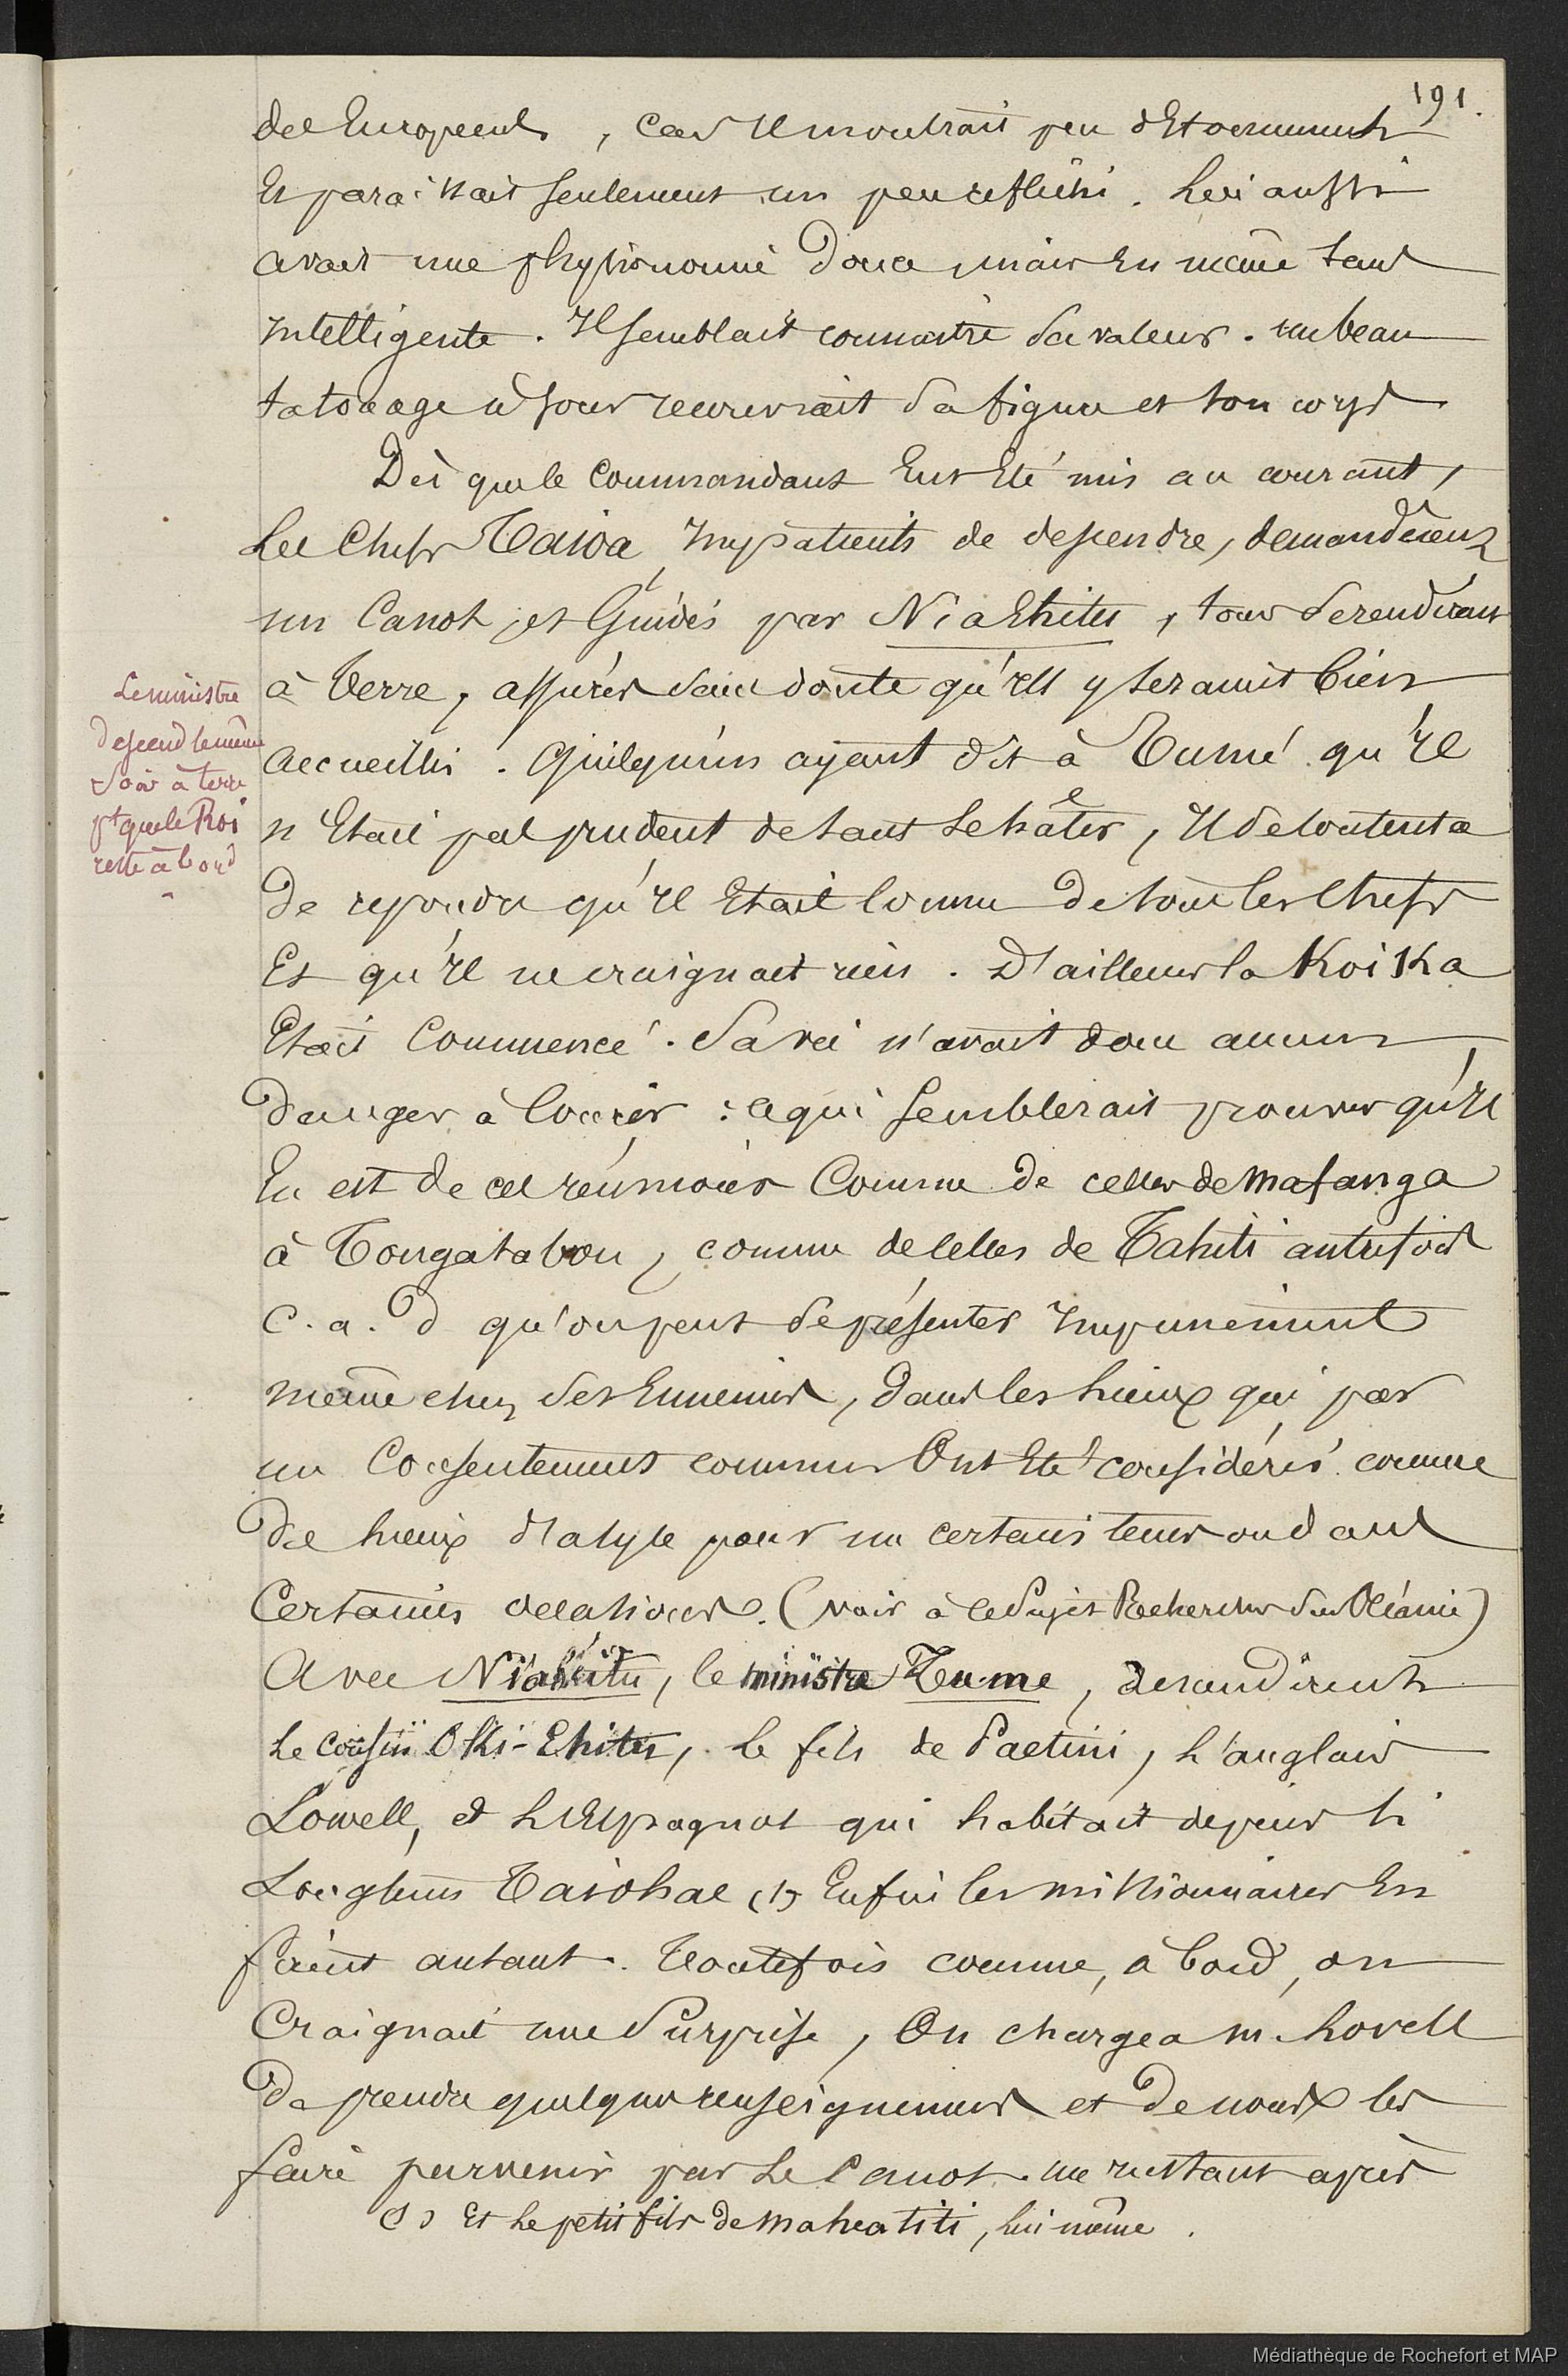 191.
des Européens, car Il montrait peu d'Etonnement
Et paraissait seulement un peu réfléchi. Lui aussi
avait une physionomie douce, mais En même tems
Intelligente. Il semblait connaitre sa valeur. un beau
tatouage à jour recouvrait sa figure et son corps
Dès que le Commandant Eut Eté mis au courant,
les Chefs Taioa, Impatients de descendre, demandèrent
un Canot, et Guidés par Niahitu, tous se rendirent
à Terre, assurés sans doute qu'Ils y seraient bien
accueillis. Quelqu'un ayant dit à Tumé qu'Il
n'Etait pas prudent de tant se hâter, Il se contenta
de repondre qu'Il Etait connu de tous les chefs
Et qu'Il ne craignait rien. D'ailleurs la Koika
Etait Commencé. Sa vie n'avait donc aucun
danger à Courir : ce qui semblerait prouver qu'Il
En est de ces réunions Comme de celles de Mafanga
à Tongatabou, comme de celles de Tahiti autrefois
C. a. d qu'on peut se présenter Impunément
même chez ses Ennemis, dans les lieux qui par
un Consentement commun Ont Eté considérés comme
de lieux d'asyle pour un certains tems ou dans
Certaines occasions. (voir à ce Sujet Recherches sur l'Océanie)
Avec Niahitu, le ministre Tume, descendirent
le cousin Oki-Ehitu, le fils de Paetini, l'anglais
Lowell, et l'Espagnol qui habitait depuis si
Longtems Taiohae (1) Enfin les missionnaires En
firent autant. Toutefois comme, à bord, on
Craignait une Surprise, On chargea m. Lovell
de prendre quelques renseignemens et de nous les
faire parvenir par le Canot. ne restant après
(1) Et le petit fils de Maheatiti, lui même.
Le ministre
descend le même
soir à terre
pt que le Roi
reste à bord
Médiathèque de Rochefort et MAP